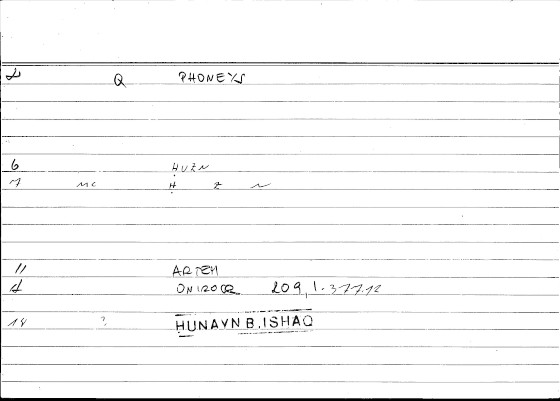 Q PHONEYS
6 HUZN
7 MC Ḥ Z N
11 ARTEM
ONIROCR 209,1.377.12
14 ? HUNAYN B. ISHAQ